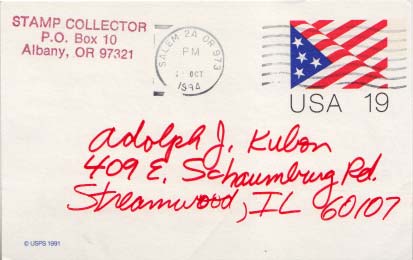 STAMP COLLECTOR
P.O. Box 10
Albany, OR 97321
SALEM 2A OR 973
PM
OCT
1994
USA 19
Adolph J. Kubon
409 E. Schaumburg Rd.
Streamwood, IL 60107
© USPS 1991